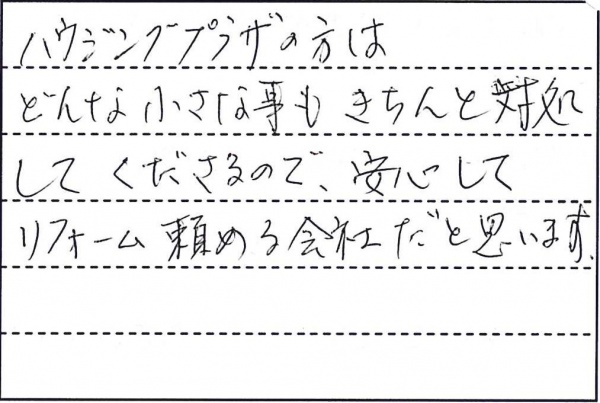 ハウジングプラザの方は
どんな小さな事も きちんと対処
して くださるので、安心して
リフォーム 頼める会社だと思います。